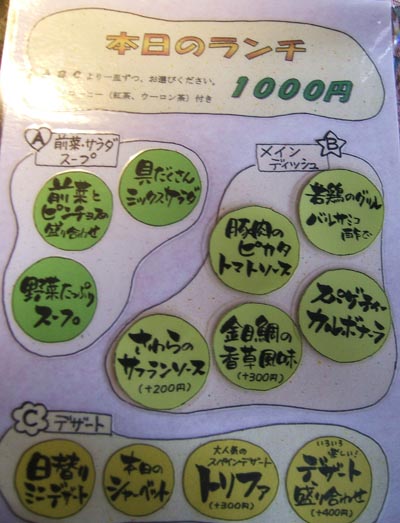 本日のランチ
A B C より一皿ずつ、お選びください。
コーヒー（紅茶、ウーロン茶）付き
1000円
A
前菜・サラダ
スープ
前菜と
ピンチョスの
盛り合わせ
具だくさん
ミックスサラダ
野菜たっぷり
スープ
メイン
ディッシュ
B
若鶏のグリル
バルサミコ
豚肉の
ピカタ
トマトソース
スパゲッティー
カルボナーラ
さわらの
サフランソース
(+200円)
金目鯛の
香草風味
(+300円)
C
デザート
日替り
ミニデザート
本日の
シャーベット
大人気の
スペインデザート
トリファ
(+300円)
いろいろ
楽しい!
デザート
盛り合わせ
(+400円)